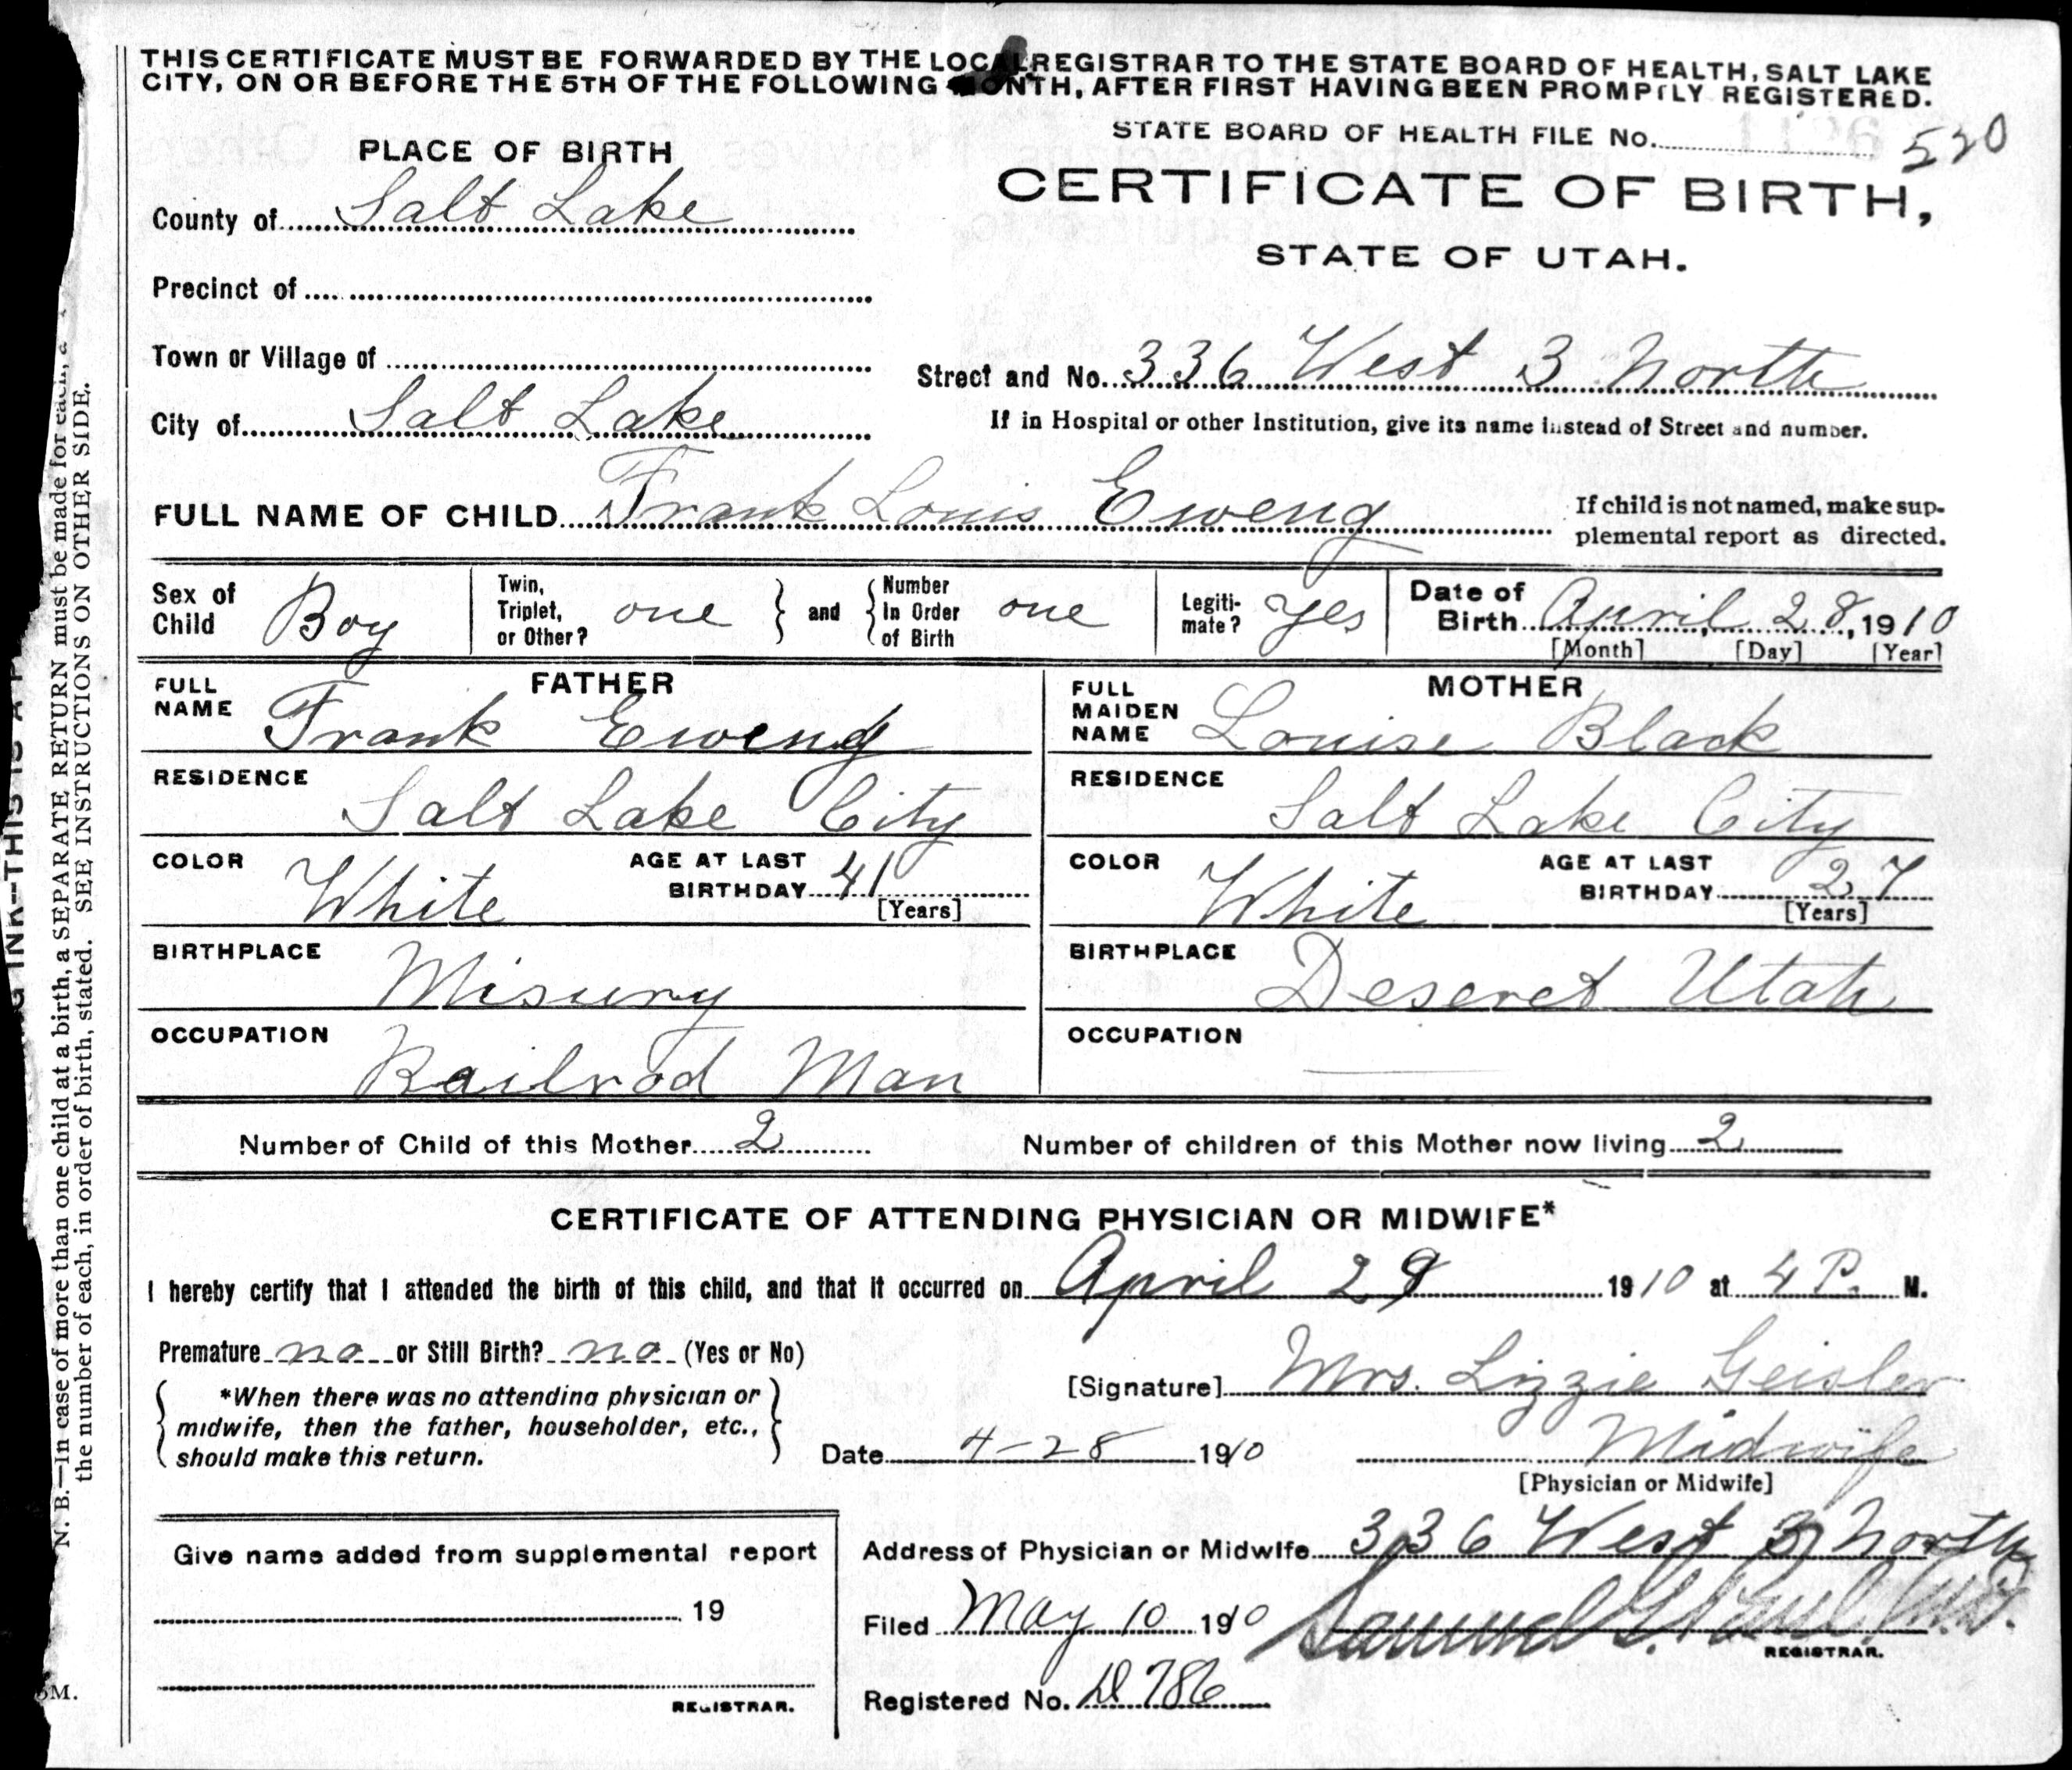 THIS CERTIFICATE MUST BE FORWARDED BY THE LOCAL REGISTRAR TO THE STATE BOARD OF HEALTH, SALT LAKE
CITY, ON OR BEFORE THE 5TH OF THE FOLLOWING MONTH, AFTER FIRST HAVING BEEN PROMPTLY REGISTERED.
STATE BOARD OF HEALTH FILE No. 520
PLACE OF BIRTH
CERTIFICATE OF BIRTH,
STATE OF UTAH.
County of Salt Lake
Precinct of
Town or Village of
Street and No. 336 West 3 North
City of Salt Lake
If in Hospital or other Institution, give its name instead of Street and number.
FULL NAME OF CHILD Frank Louis Eweng
If child is not named, make sup-
plemental report as directed.
Sex of Child Boy
Twin, Triplet, or Other? one and Number In Order of Birth one
Legiti-mate? Yes
Date of Birth April 28, 1910
[Month] [Day] [Year]
FATHER
FULL NAME Frank Eweng
RESIDENCE Salt Lake City
COLOR White AGE AT LAST BIRTHDAY 41 [Years]
BIRTHPLACE Misury
OCCUPATION Railrod Man
MOTHER
FULL MAIDEN NAME Louise Black
RESIDENCE Salt Lake City
COLOR White AGE AT LAST BIRTHDAY 27 [Years]
BIRTHPLACE Deseret Utah
OCCUPATION
Number of Child of this Mother 2 Number of children of this Mother now living 2
CERTIFICATE OF ATTENDING PHYSICIAN OR MIDWIFE*
I hereby certify that I attended the birth of this child, and that it occurred on April 29 1910 at 4 P. M.
Premature no or Still Birth? no (Yes or No)
*When there was no attending physician or
midwife, then the father, householder, etc.,
should make this return.
[Signature] Mrs. Lizzie Geisler
Date 4-28 1910 Midwife
[Physician or Midwife]
Give name added from supplemental report
19
REGISTRAR.
Address of Physician or Midwife 336 West 3 North
Filed May 10 1910 Samuel G. Paul M.D.
REGISTRAR.
Registered No. D 786
N. B.—In case of more than one child at a birth, a SEPARATE RETURN must be made for each, a
the number of each, in order of birth, stated. SEE INSTRUCTIONS ON OTHER SIDE.
INK—THIS IS A